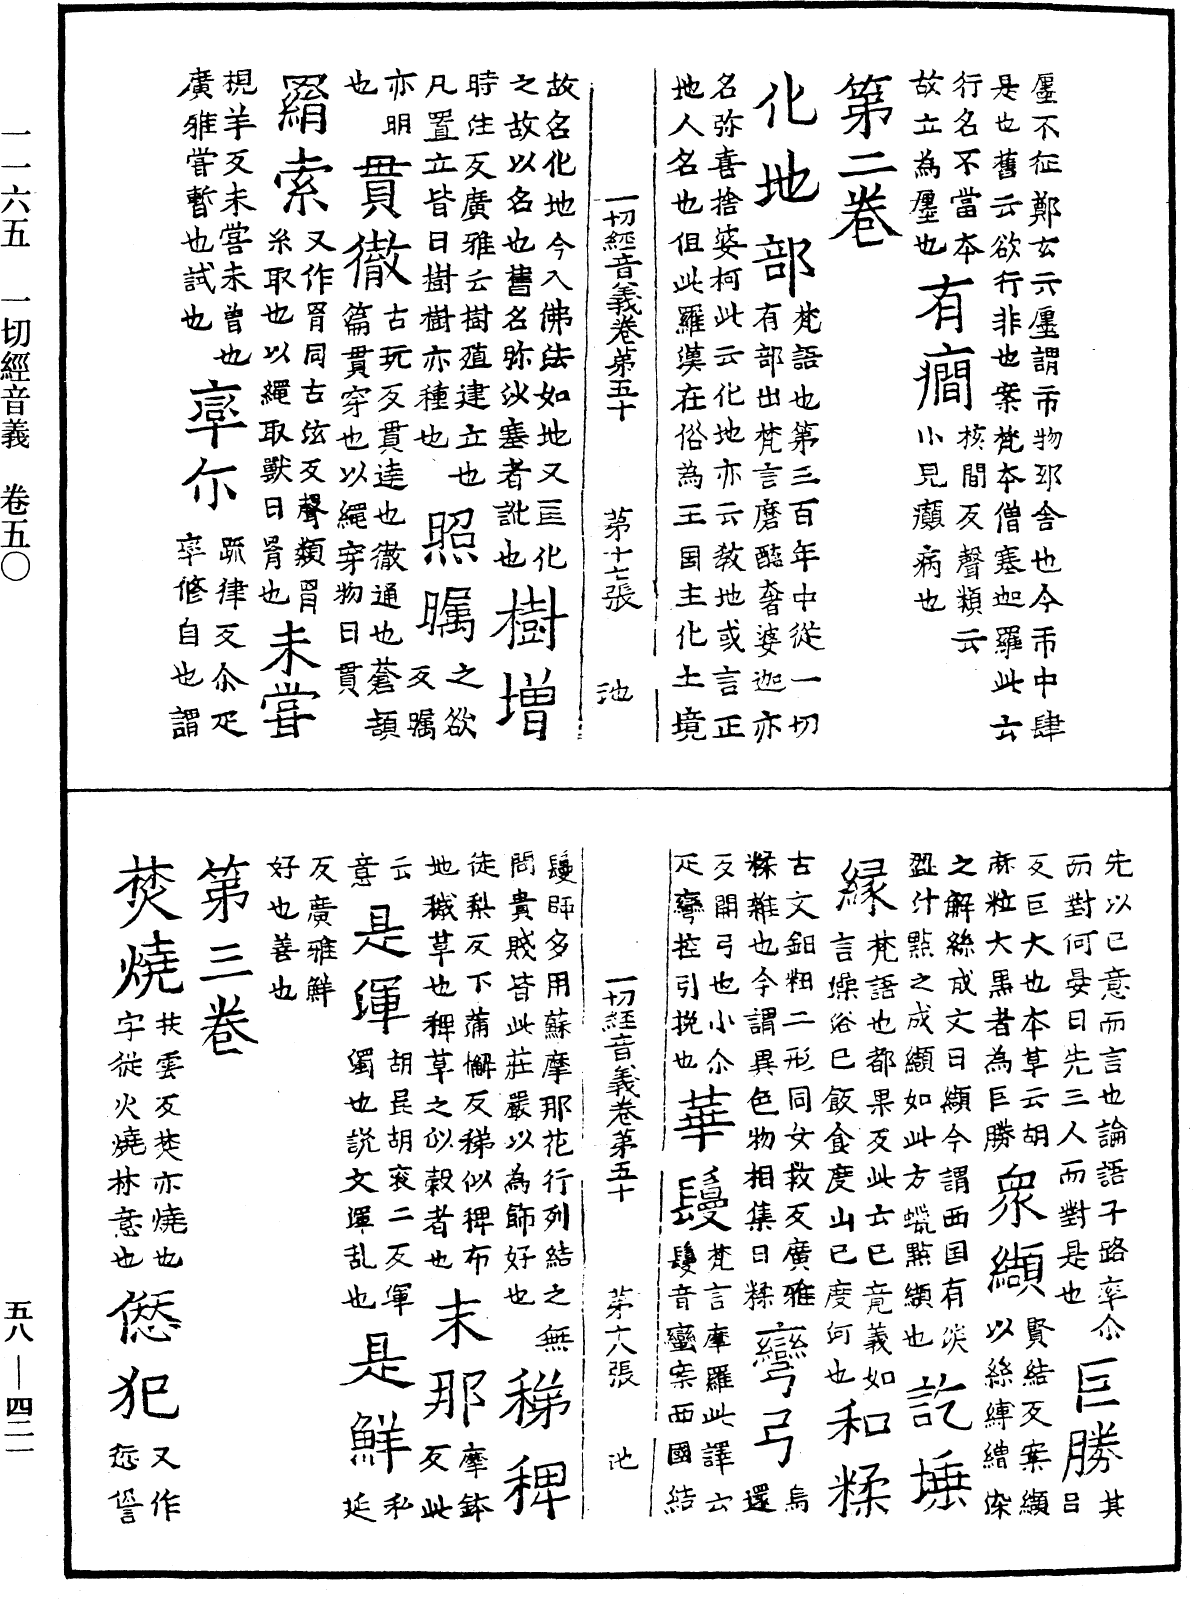 㕓不征鄭玄云㕓謂市物邸舍也今市中肆
是也舊云欲行非也案梵本僧塞迦羅此云
行名不當本
故立為㕓也
有癎
核間反聲類云
小兒癲病也
第二卷
化地部
梵語也第三百年中從一切
有部出梵言磨醯奢婆迦亦
名弥喜捨婆柯此云化地亦云教地或言正
地人名也但此羅漢在俗為王国主化土境
一切經音義卷第五十 第十七張 池
故名化地今入佛法如地又匡化
之故以名也舊名弥沙塞者訛也
樹增
時注反廣雅云樹殖建立也
凡置立皆曰樹樹亦種也
照矚
之欲
反矚
亦明
也
貫徹
古玩反貫達也徹通也蒼頡
篇貫穿也以繩穿物曰貫
羂索
又作罥同古泫反聲類罥
糸取也以繩取獸曰罥也
未甞
視羊反未甞未曾也
廣雅甞暫也試也
率尒
踈律反尒疋
率俻自也謂
先以已意而言也論語子路率尒
而對何晏曰先三人而對是也
巨勝
其
呂
反巨大也本草云胡
麻粒大黒者為巨勝
衆纈
賢結反案纈
以絲縛繒染
之解絲成文曰纈今謂西国有淡
盪汁點之成纈如此方蠟點纈也
訖埵
緣
梵語也都果反此云已竟義如
言燥浴已飯食度山已度何也
和糅
古文鈕粈二形同女救反廣雅
糅雜也今謂異色物相集曰糅
彎弓
烏
還
反開弓也小尒
疋彎控引挽也
華鬘
梵言摩羅此譯云
鬘音蠻案西國結
一切經音義卷第五十 第十八張 池
鬘師多用蘇摩那花行列結之無
問貴賤皆此莊嚴以為飾好也
稊稗
徒梨反下蒲懈反稊似稗布
地穢草也稗草之似穀者也
末那
摩鉢
反此
云
意
是渾
胡昆胡衮二反渾
濁也説文渾乱也
是鮮
私
延
反廣雅鮮
好也善也
第三卷
焚燒
扶雲反焚亦燒也
字從火燒林意也
𠎝犯
又作
㥶諐
一一六五 一切經音義 卷五〇
五八—四二一